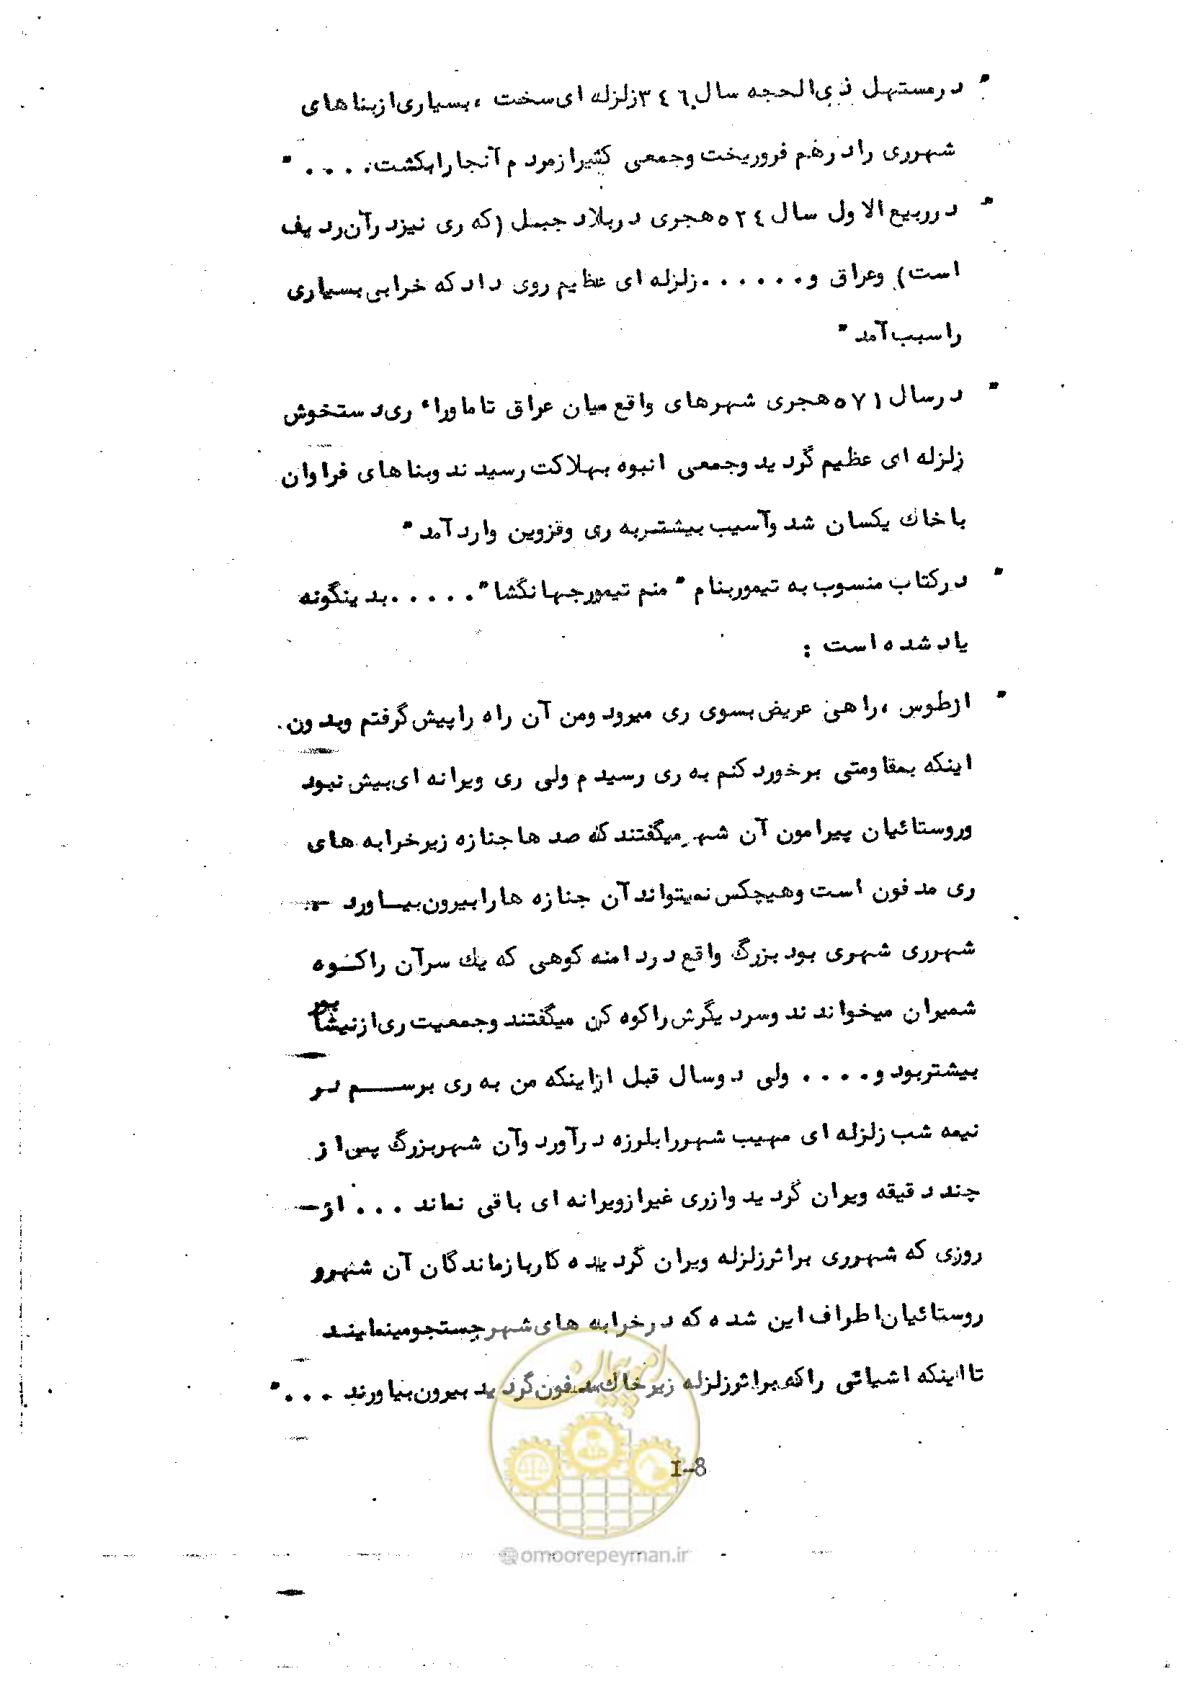 " در مستهل ذی‌الحجه سال ۳٤٦ زلزله‌ای سخت ، بسیاری از بناهای
شهر ری را در هم فرو ریخت و جمعی کثیر از مردم آنجا را بکشت . . . . "
" در ربیع الاول سال ٥٢٤ هجری در بلاد جبل (که ری نیز در آن ردیف
است) و عراق و . . . . . . زلزله‌ای عظیم روی داد که خرابی بسیاری
را سبب آمد "
" در سال ٥٧١ هجری شهرهای واقع میان عراق تا ماوراء ری دستخوش
زلزله‌ای عظیم گردید و جمعی انبوه بهلاکت رسیدند و بناهای فراوان
با خاک یکسان شد و آسیب بیشتر به ری و قزوین وارد آمد "
" در کتاب منسوب به تیمور بنام " منم تیمور جهانگشا " . . . . . بدینگونه
یاد شده است :
" از طوس ، راهی عریض بسوی ری میرود و من آن راه را پیش گرفتم و بدون
اینکه بمقاومتی برخورد کنم به ری رسیدم ولی ری ویرانه‌ای بیش نبود
و روستائیان پیرامون آن شهر میگفتند که صدها جنازه زیر خرابه‌های
ری مدفون است و هیچکس نمیتواند آن جنازه‌ها را بیرون بیاورد —
شهر ری شهری بود بزرگ واقع در دامنه کوهی که یک سر آن را کوه
شمیران میخواندند و سر دیگرش را کوه کن میگفتند و جمعیت ری از نیشابور
بیشتر بود و . . . . ولی دو سال قبل از اینکه من به ری برسم در
نیمه شب زلزله‌ای مهیب شهر را بلرزه درآورد و آن شهر بزرگ پس از
چند دقیقه ویران گردید و از ری غیر از ویرانه‌ای باقی نماند . . . از—
روزی که شهر ری بر اثر زلزله ویران گردیده کار بازماندگان آن شهر و
روستائیان اطراف این شده که در خرابه‌های شهر جستجو مینمایند
تا اینکه اشیائی را که بر اثر زلزله زیر خاک مدفون گردید بیرون بیاورند . . . "
امور پیمان
I-8
@omoorepeyman.ir